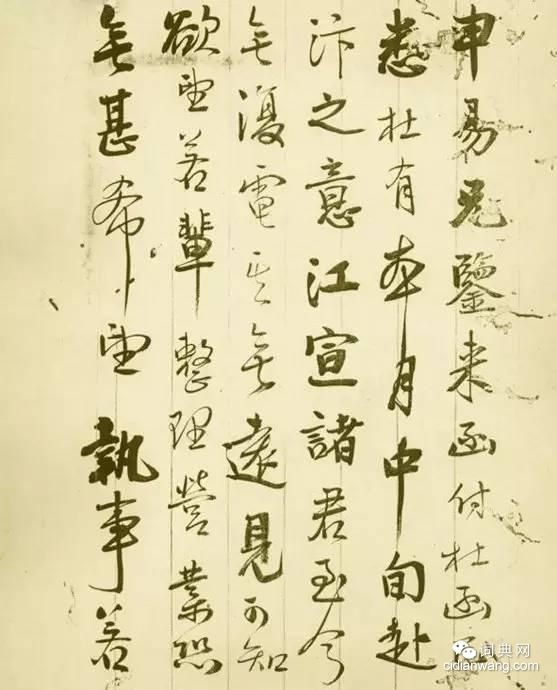 申易兄鑒来函付杜函
悉杜有本月中旬赴
汴之意江宣諸君至今
无復電其无遠見可知
欲望若輩整理營業恐
无甚希望執事若
词典网
cidianwang.com